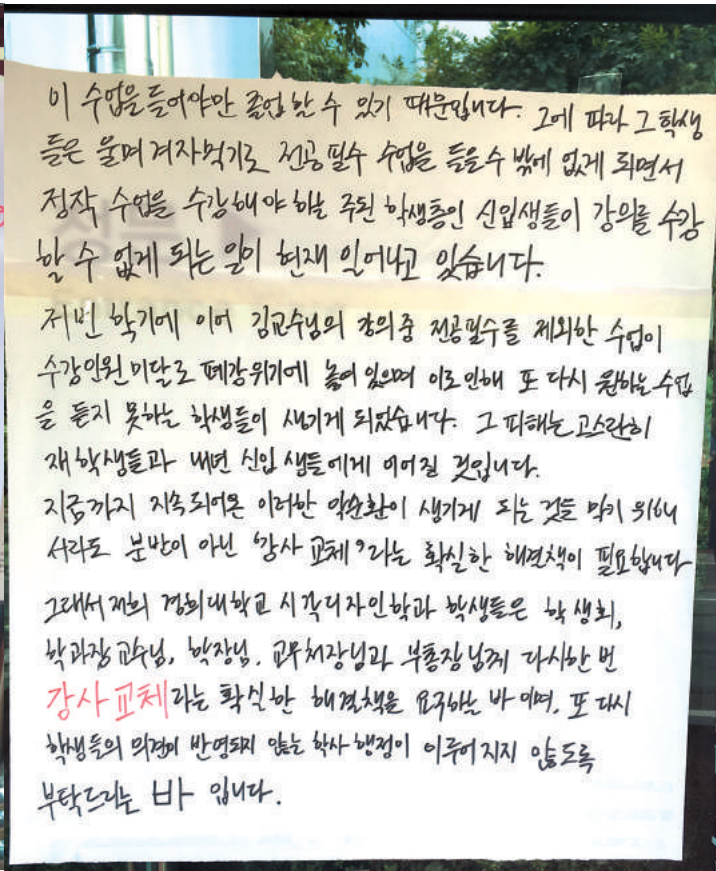 이 수업을 들어야만 졸업 할 수 있기 때문입니다. 그에 따라 그 학생
들은 울며 겨자먹기로 전공 필수 수업을 들을 수 밖에 없게 되면서
정작 수업을 수강해야 하는 주된 학생층인 신입생들이 강의를 수강
할 수 없게 되는 일이 현재 일어나고 있습니다.
저번 학기에 이어 김교수님의 강의 중 전공필수를 제외한 수업이
수강인원 미달로 폐강위기에 놓여 있으며 이로 인해 또 다시 원하는 수업
을 듣지 못하는 학생들이 생기게 되었습니다. 그 피해는 고스란히
재학생들과 내년 신입생들에게 이어질 것입니다.
지금까지 지속되어온 이러한 악순환이 생기게 되는 것을 막기 위해
서라도 분반이 아닌 '강사 교체'라는 확실한 해결책이 필요합니다
그래서 저희 경희대학교 시각디자인학과 학생들은 학생회,
학과장 교수님, 학장님, 교무처장님과 부총장님께 다시한 번
강사 교체라는 확실한 해결책을 요구하는 바 이며, 또 다시
학생들의 의견이 반영되지 않는 학사 행정이 이루어지지 않도록
부탁드리는 바 입니다.